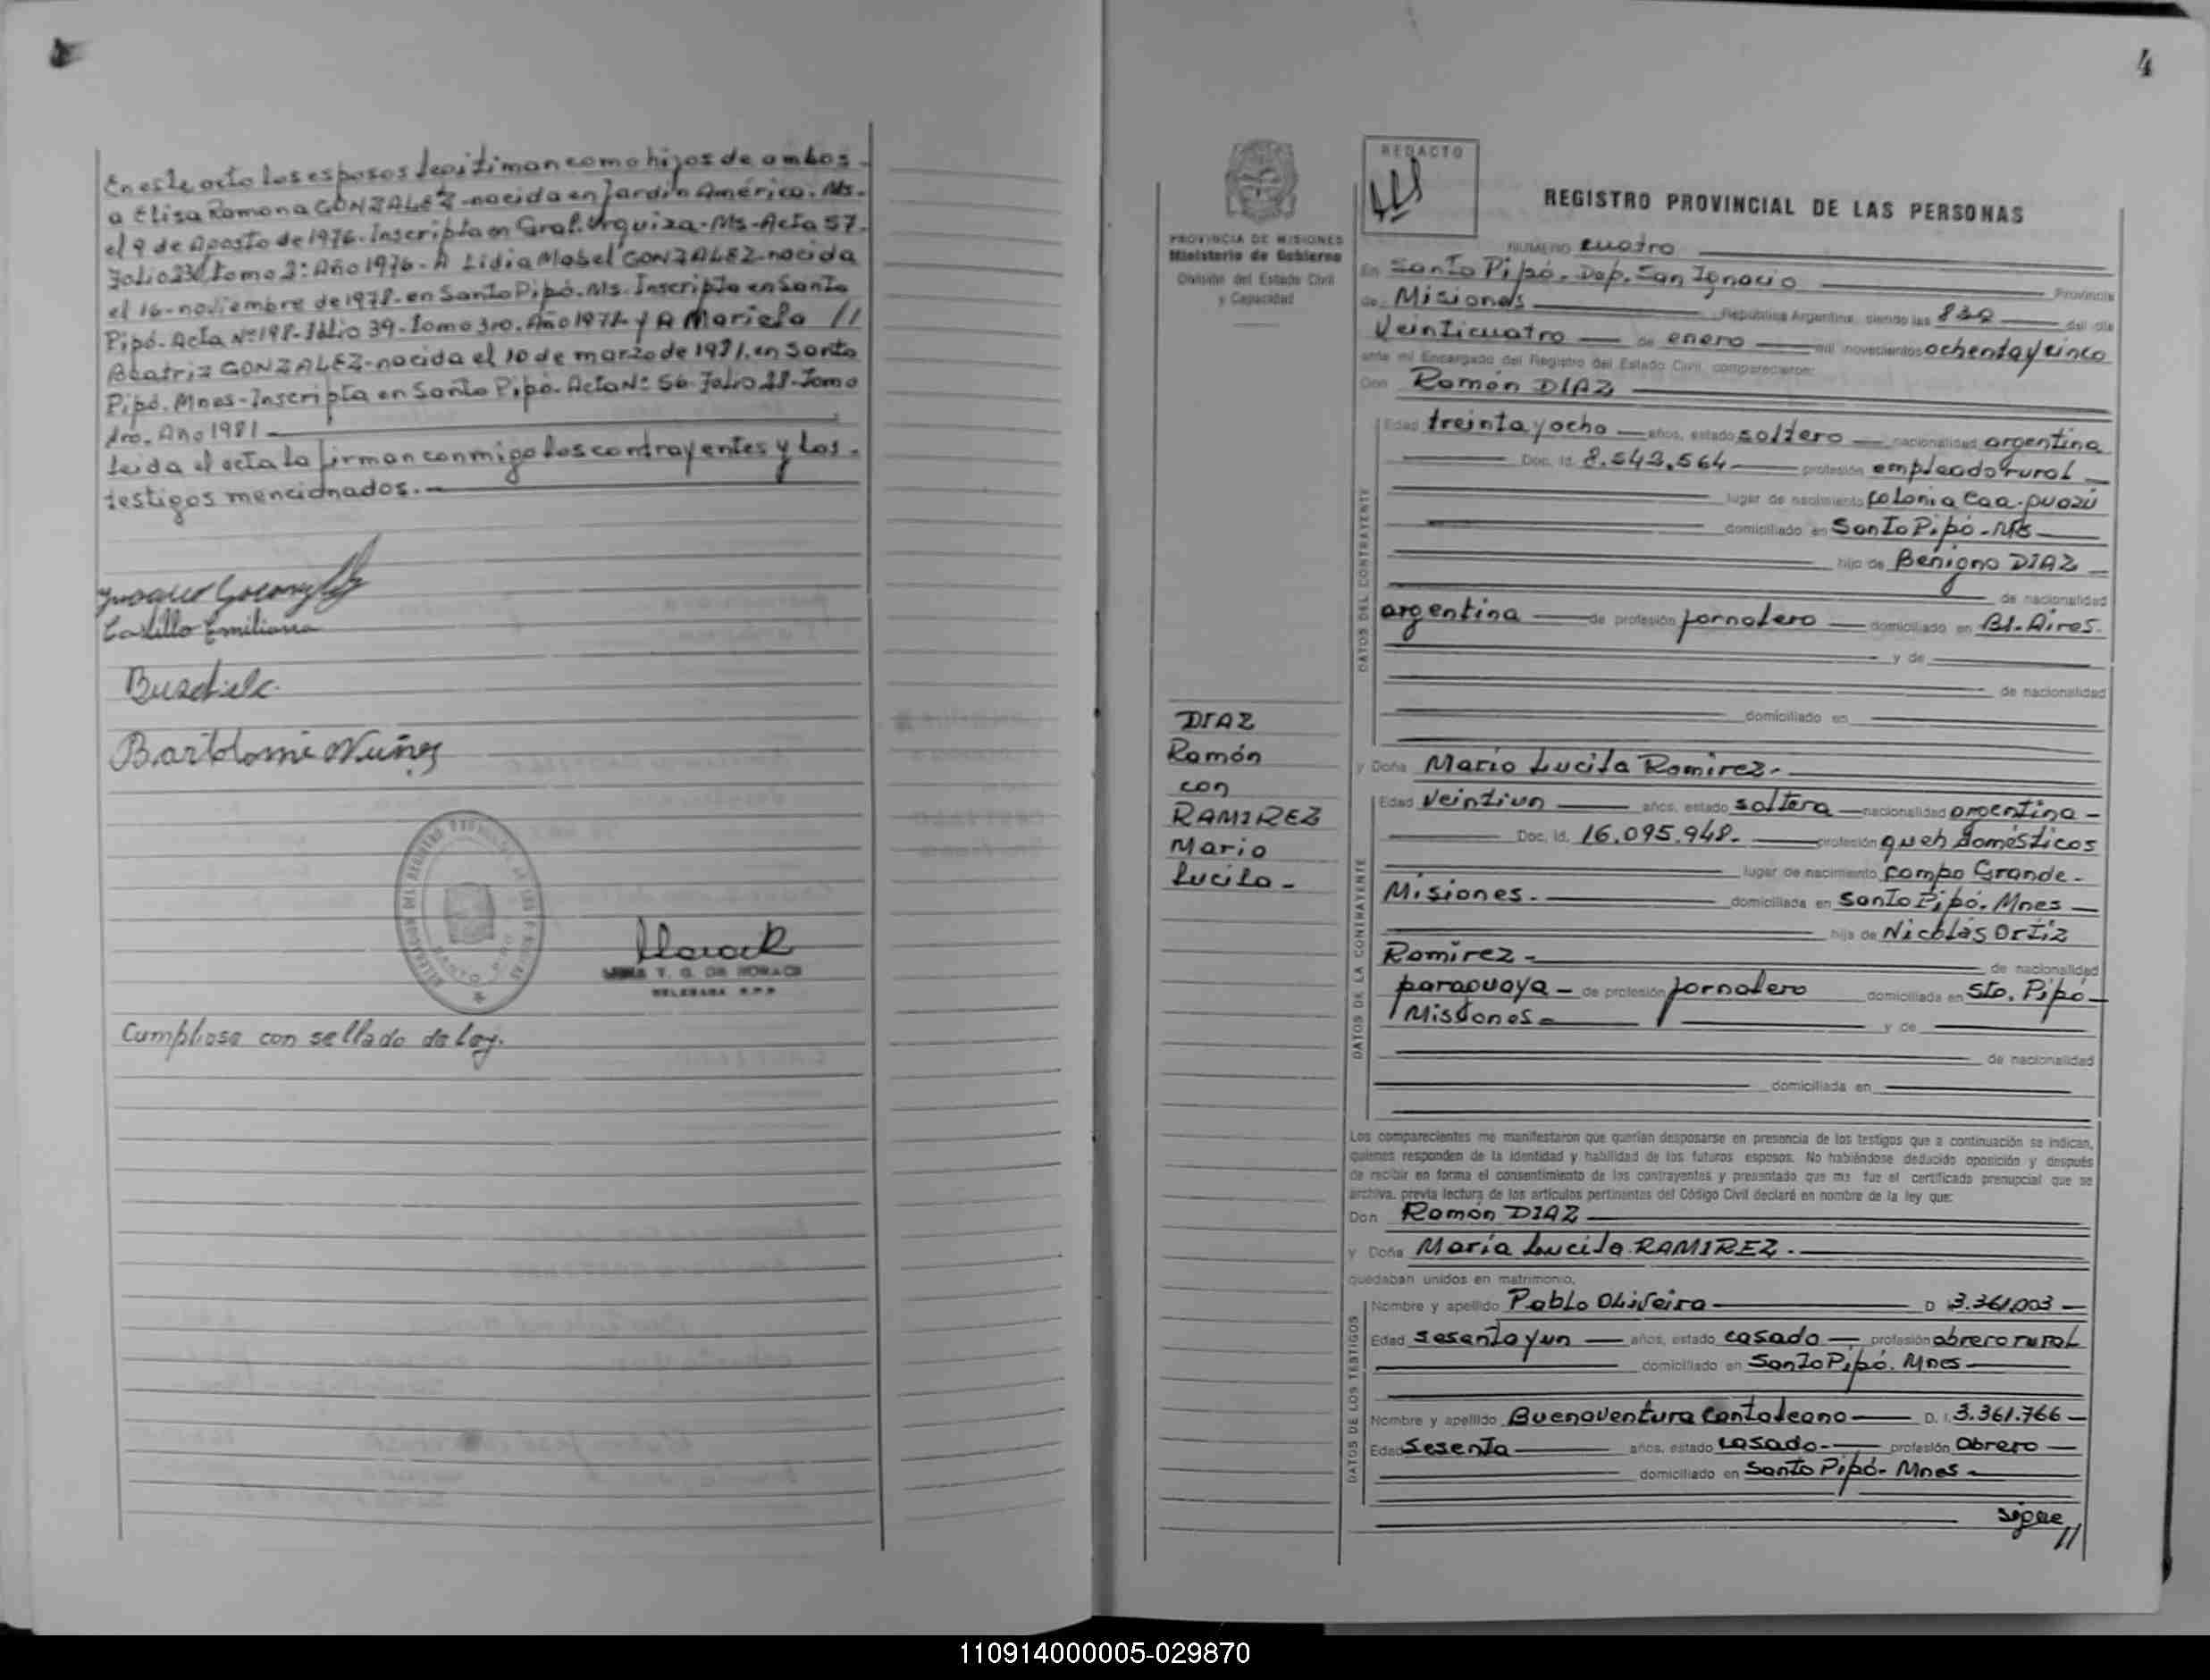 En este acto los esposos legitiman como hijos de ambos-
a Elisa Ramona GONZALEZ-nacida en Jardín América. Ms.
el 9 de Agosto de 1976-Inscripta en Gral. Urquiza-Ms-Acta 57.
Folio 23 Tomo 2: Año 1976- A Lidia Mabel GONZALEZ-nacida
el 16-noviembre de 1978-en Santo Pipó. Ms. Inscripta en Santo
Pipó-Acta Nº198-Folio 39-Tomo 3ro. Año 1978 y A Mariela //
Beatriz GONZALEZ-nacida el 10 de marzo de 1981, en Santo
Pipó. Mnes-Inscripta en Santo Pipó-Acta Nº 56-Folio 28-Tomo
1ro. Año 1981
Leida el acta la firman conmigo los contrayentes y los-
testigos mencionados.-
Castillo Emiliana
Bartolomé Nuñez
T. G. DE HORACK
DELEGADA R.P.P
Cumpliose con sellado de Ley.
4
PROVINCIA DE MISIONES
Ministerio de Gobierno
División del Estado Civil
y Capacidad
DIAZ
Ramón
con
RAMIREZ
Maria
Lucila-
REDACTO
REGISTRO PROVINCIAL DE LAS PERSONAS
NUMERO cuatro
En Santo Pipó. Dep. San Ignacio Provincia
de Misiones República Argentina, siendo las 830 del día
Veinticuatro de enero mil novecientos ochenta y cinco
ante mí Encargado del Registro del Estado Civil, comparecieron:
Don Ramón DIAZ
DATOS DEL CONTRAYENTE
Edad treinta y ocho años, estado soltero nacionalidad argentina
Doc. Id. 8.543.564 profesión empleado rural
lugar de nacimiento Colonia Caa-guazú
domiciliado en Santo Pipó-Ms
hijo de Benigno DIAZ
de nacionalidad
argentina de profesión jornalero domiciliado en Bs. Aires.
y de
de nacionalidad
domiciliado en
y Doña Maria Lucila Ramirez.
DATOS DE LA CONTRAYENTE
Edad veintiun años, estado soltera nacionalidad argentina-
Doc. Id. 16.095.948. profesión queh domésticos
lugar de nacimiento Campo Grande-
Misiones. domiciliada en Santo Pipó. Mnes
hija de Nicolás Ortiz
Ramirez- de nacionalidad
paraguaya- de profesión jornalero domiciliada en Sto. Pipó-
Misiones- y de
de nacionalidad
domiciliada en
Los comparecientes me manifestaron que querían desposarse en presencia de los testigos que a continuación se indican,
quienes responden de la identidad y habilidad de los futuros esposos. No habiéndose deducido oposición y después
de recibir en forma el consentimiento de los contrayentes y presentado que me fue el certificado prenupcial que se
archiva, previa lectura de los artículos pertinentes del Código Civil declaré en nombre de la ley que:
Don Ramón DIAZ
y Doña María Lucila RAMIREZ.
quedaban unidos en matrimonio.
DATOS DE LOS TESTIGOS
Nombre y apellido Pablo Oliveira D 3.361.003
Edad sesenta y un años, estado casado profesión obrero rural
domiciliado en Santo Pipó. Mnes
Nombre y apellido Buenaventura Cantaleano D. I. 3.361.766
Edad Sesenta años, estado casado- profesión Obrero
domiciliado en Santo Pipó- Mnes-
sigue //
110914000005-029870